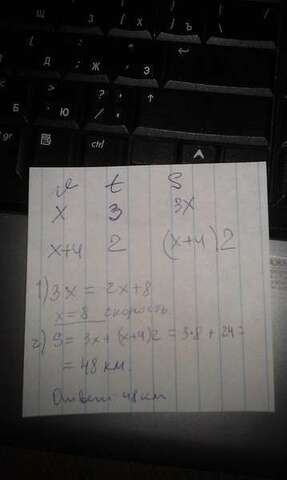 Д ; Ж , Э
ctrl
gr
Б Ю / .
A
v t S
x 3 3x
x+4 2 (x+4)2
1) 3x = 2x+8
x = 8 скорость
2) S = 3x + (x+4)2 = 3·8 + 24 =
= 48 км.
Ответ 48 км